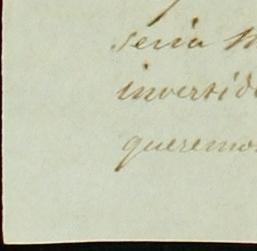 seria
invertid
queremos